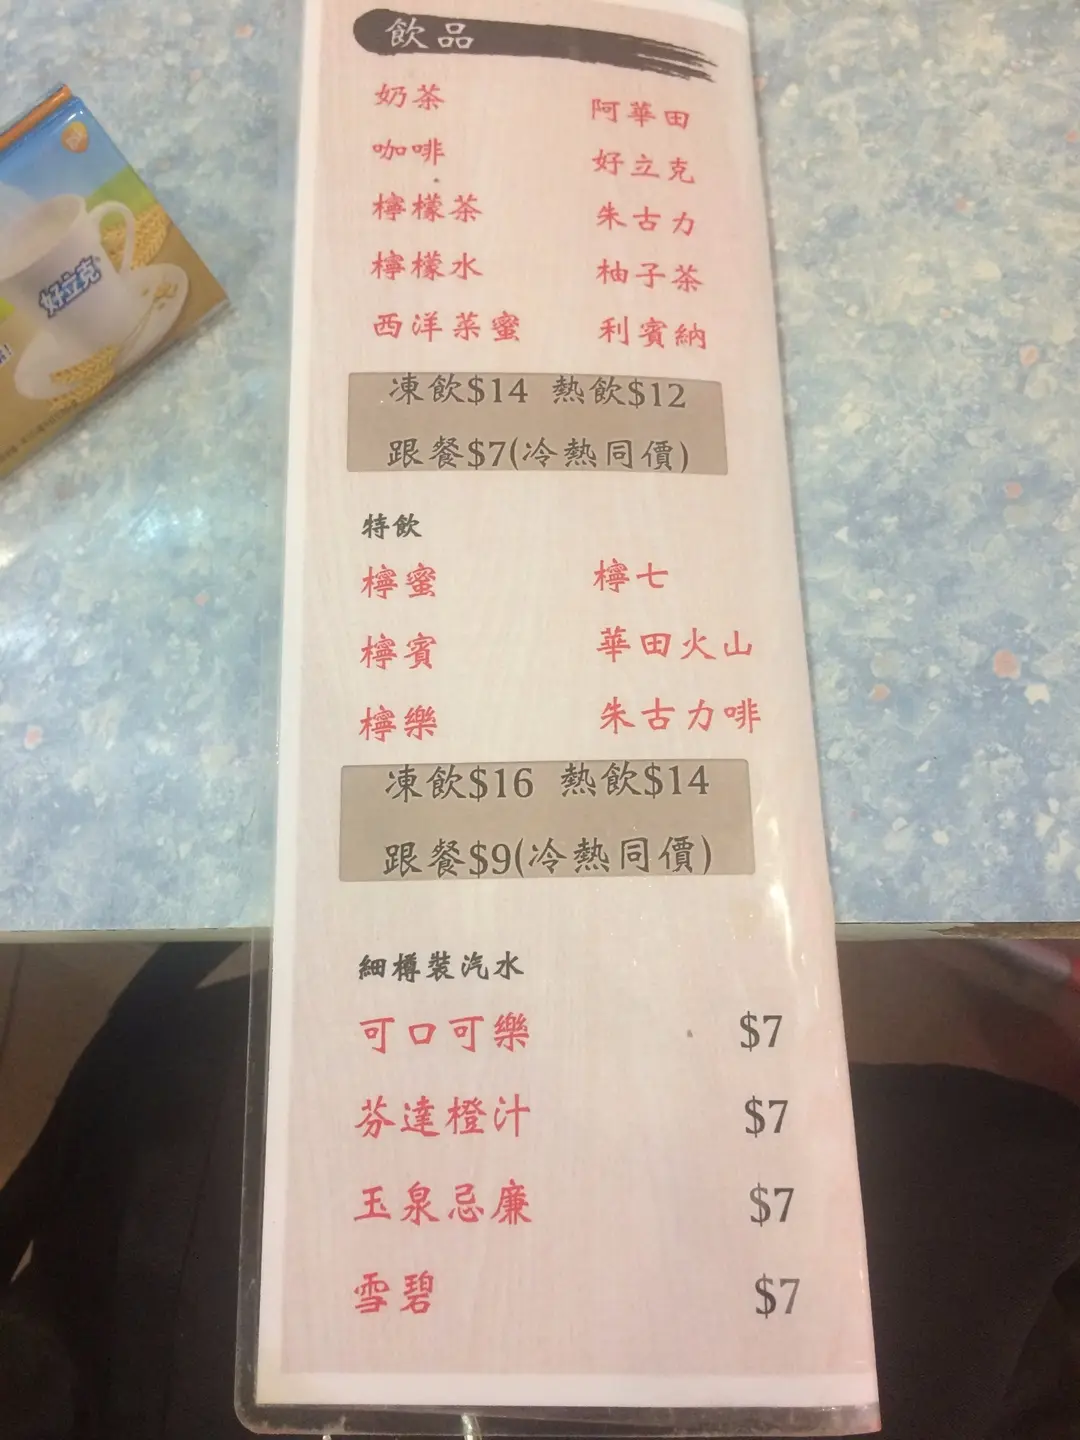 飲品
奶茶 阿華田
咖啡 好立克
檸檬茶 朱古力
檸檬水 柚子茶
西洋菜蜜 利賓納
凍飲$14 熱飲$12
跟餐$7(冷熱同價)
特飲
檸蜜 檸七
檸賓 華田火山
檸樂 朱古力啡
凍飲$16 熱飲$14
跟餐$9(冷熱同價)
細樽裝汽水
可口可樂 $7
芬達橙汁 $7
玉泉忌廉 $7
雪碧 $7
好立克